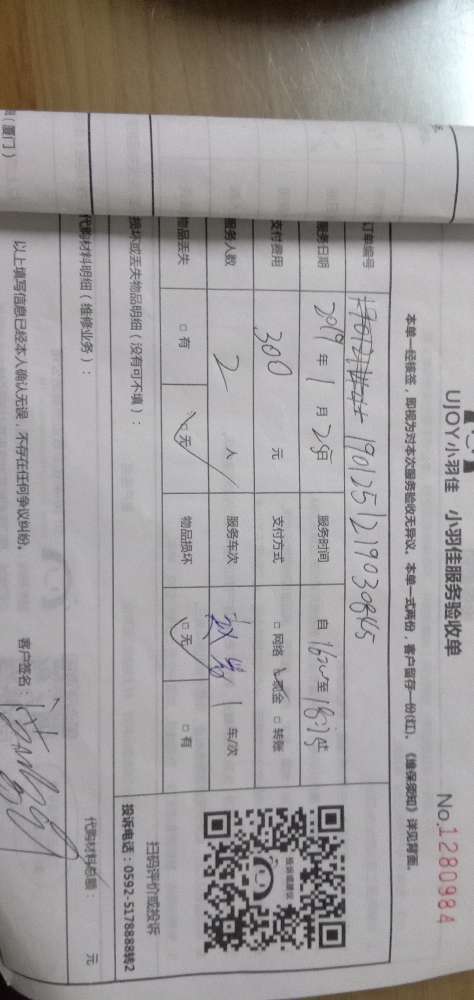 UJOY小羽佳 小羽佳服务验收单
No.1280984
本单一经核签，即视为对本次服务验收无异议。本单一式两份，客户留存一份(红)。《维保须知》详见背面。
订单编号 190125121903084S
服务日期 2019 年 1 月 25日 服务时间 自 至
支付费用 300 元 支付方式 □ 网络 □ 现金 □ 转账
服务人数 2 人 服务车次 1 车/次
物品丢失 □ 有 □ 无 物品损坏 □ 无 □ 有
损坏或丢失物品明细（没有可不填）：
扫码评价或投诉
投诉电话：0592-5178888转2
代购材料明细（维修业务）：
代购材料总额： 元
以上填写信息已经本人确认无误，不存在任何争议纠纷。
客户签名：
（厦门）